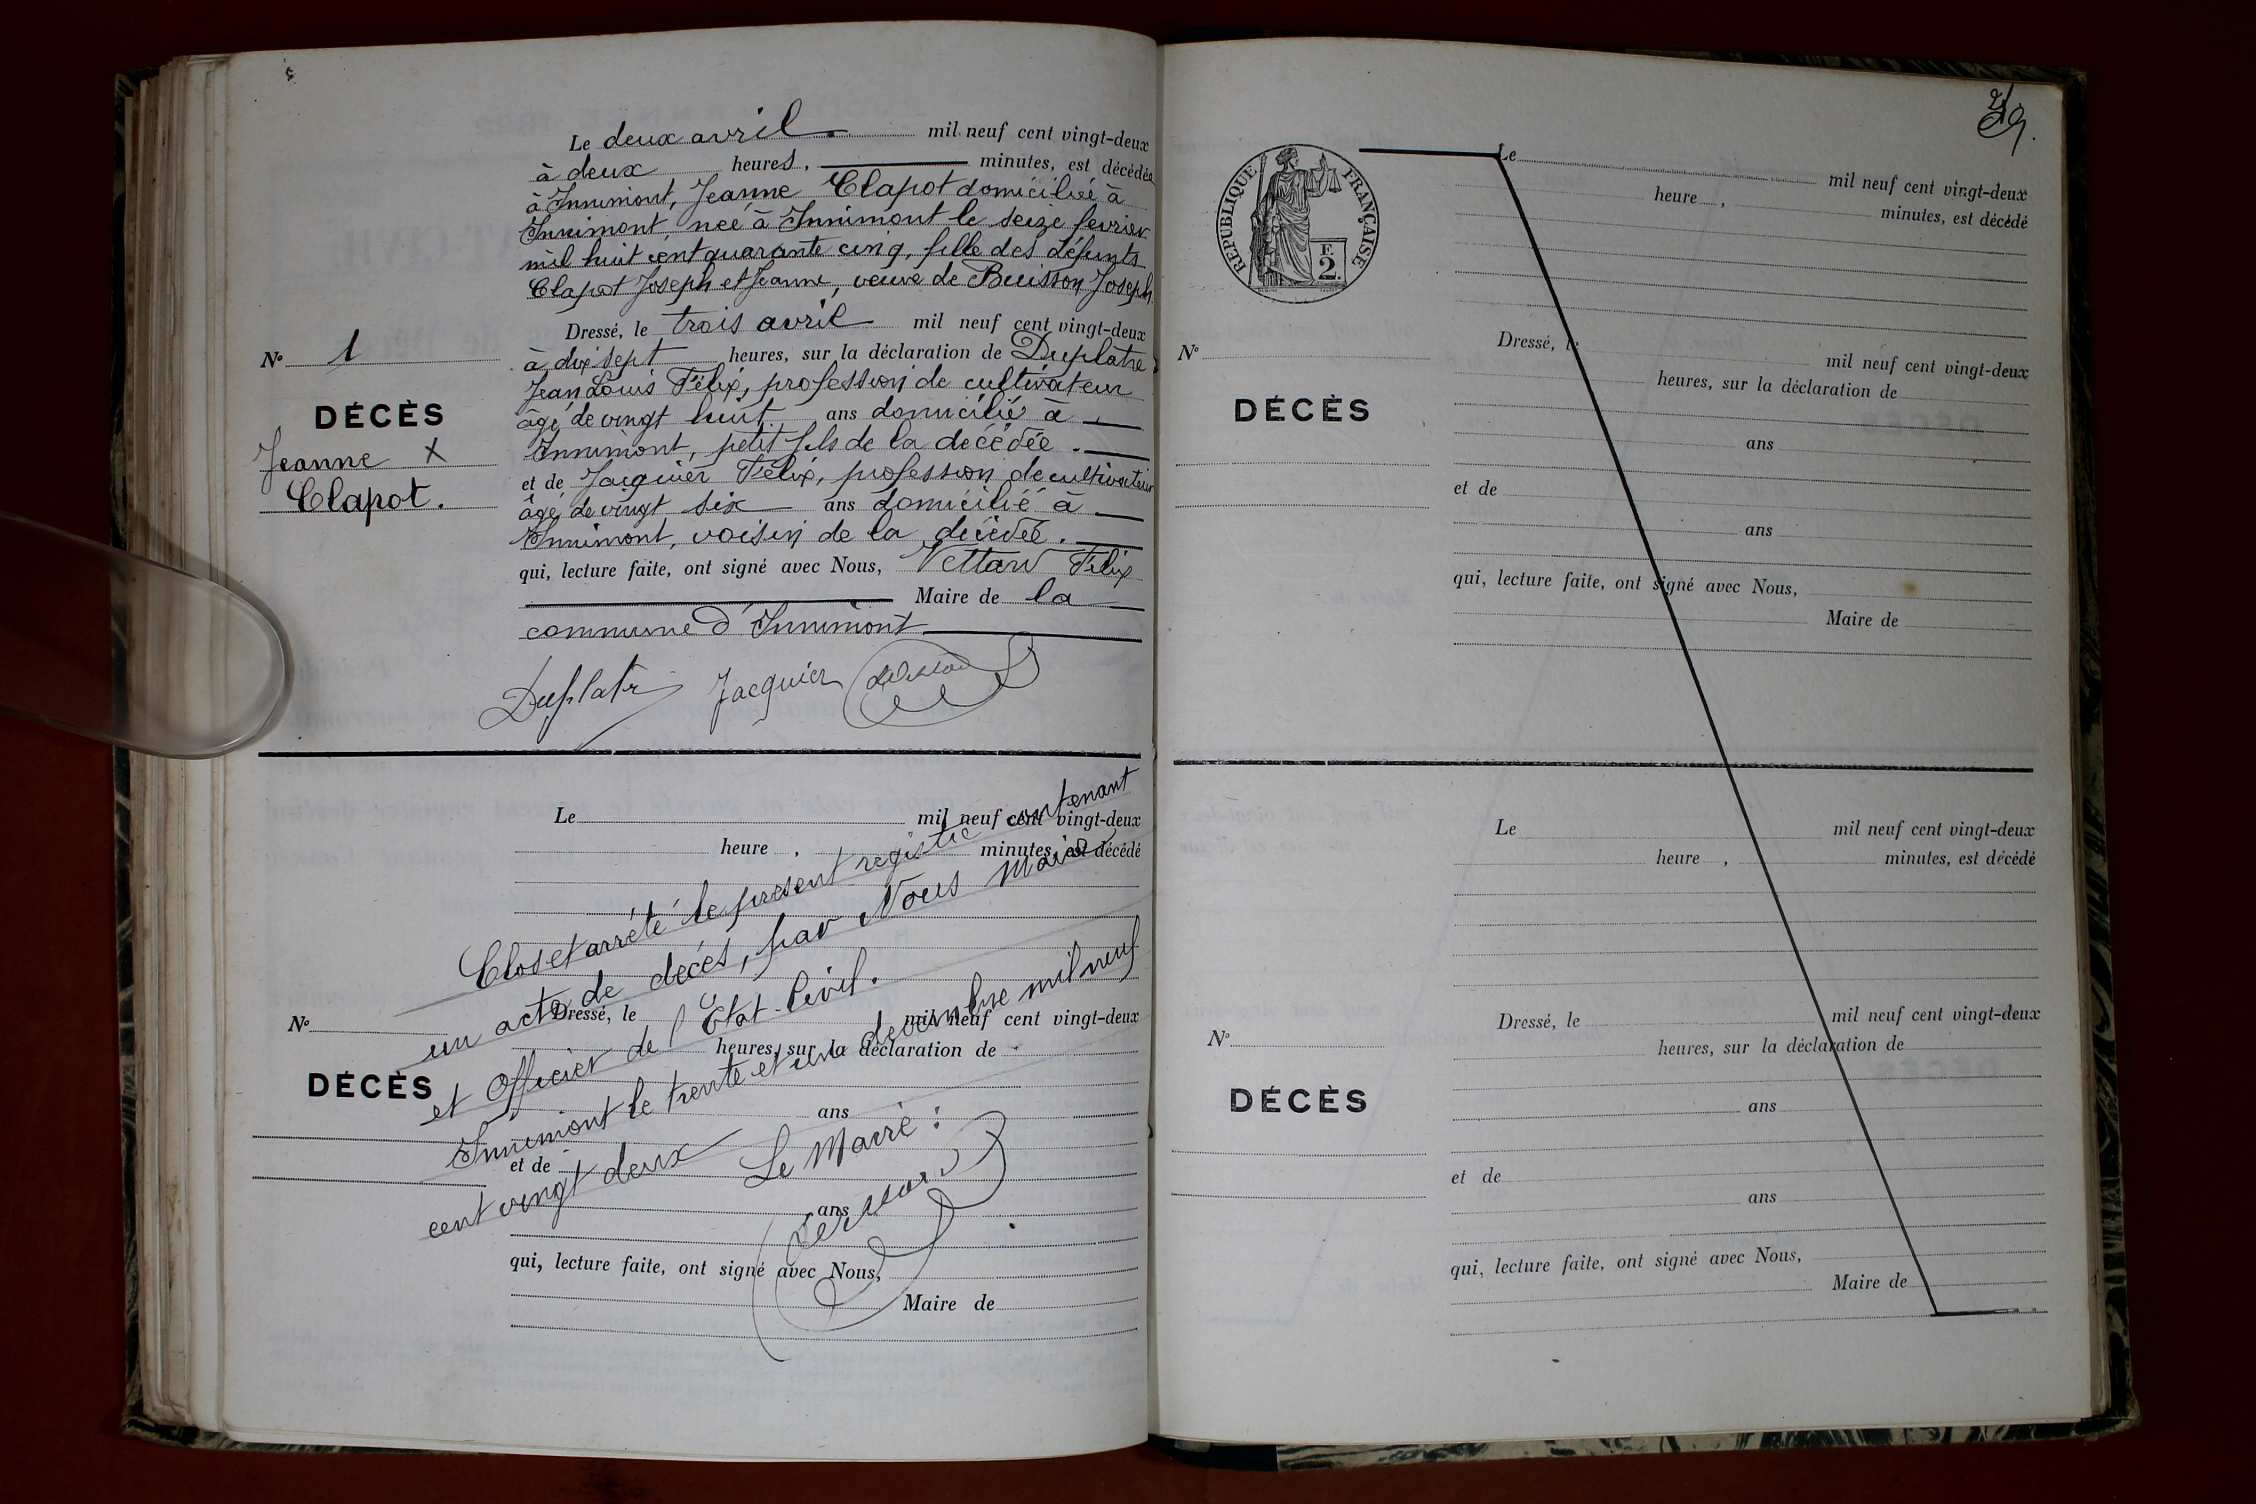 Le deux avril. mil neuf cent vingt-deux
à deux heures, minutes, est décédée
à Innimont, Jeanne Clapot domiciliée à
Innimont, neé à Innimont le seize fevrier
mil huit cent quarante cinq, fille des défunts
Clapot Joseph et Jeanne, veuve de Buisson Joseph
Dressé, le trois avril mil neuf cent vingt-deux
à dix sept heures, sur la déclaration de Duplatre
Jean Louis Félix, profession de cultivateur
âgé de vingt huit ans domicilié à
Innimont, petit fils de la décédée.
et de Jacquier Félix, profession de cultivateur
âgé de vingt six ans domicilié à
Innimont, voisin de la décédée.
qui, lecture faite, ont signé avec Nous, Vettard Félix
Maire de la
commune d'Innimont
N° 1
DÉCÈS
Jeanne X
Clapot.
Duplatre Jacquier
Le mil neuf cent vingt-deux
heure , minutes, est décédé
Dressé, le mil neuf cent vingt-deux
heures, sur la déclaration de
ans
et de
ans
qui, lecture faite, ont signé avec Nous,
Maire de
N°
DÉCÈS
Clos et arrêté le present registre contenant
un acte de décés, par Nous Maire
et Officier de l'Etat-Civil.
Innimont le trente et un decembre mil neuf
cent vingt deux
Le Maire :
29.
RÉPUBLIQUE FRANÇAISE
F.
2.
Le mil neuf cent vingt-deux
heure , minutes, est décédé
Dressé, le mil neuf cent vingt-deux
heures, sur la déclaration de
ans
et de
ans
qui, lecture faite, ont signé avec Nous,
Maire de
N°
DÉCÈS
Le mil neuf cent vingt-deux
heure , minutes, est décédé
Dressé, le mil neuf cent vingt-deux
heures, sur la déclaration de
ans
et de
ans
qui, lecture faite, ont signé avec Nous,
Maire de
N°
DÉCÈS